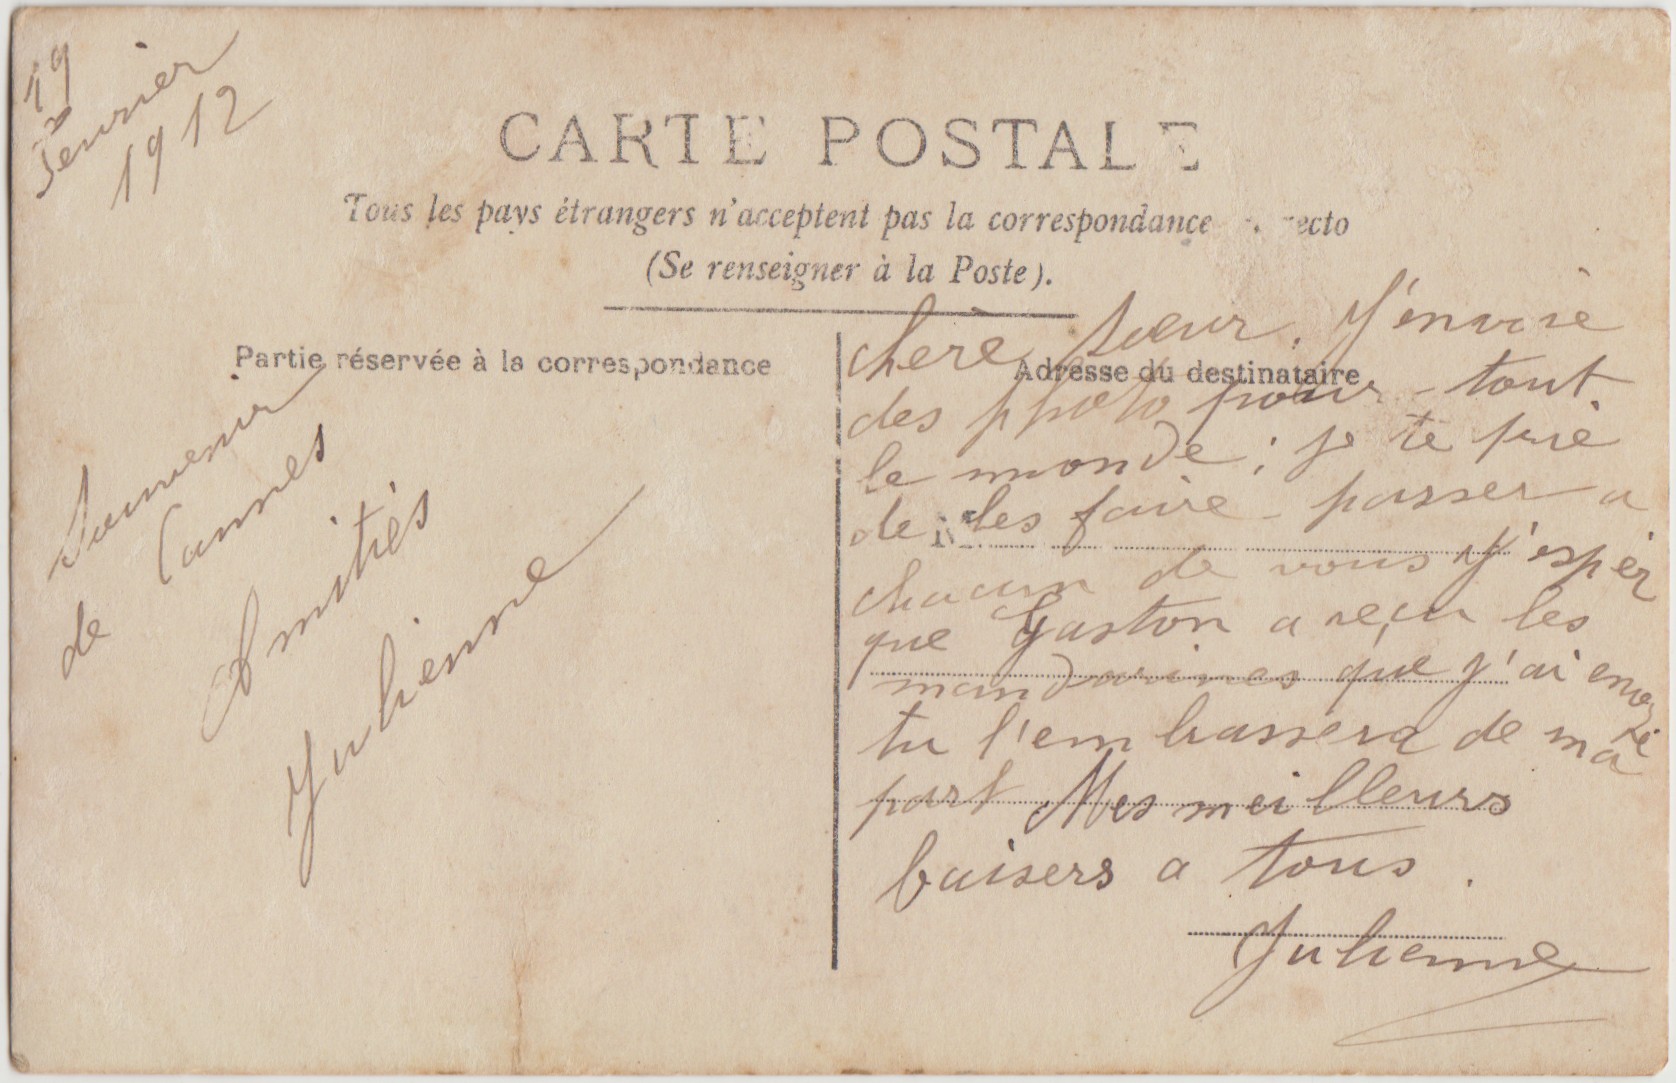 19
Fevrier
1912
CARTE POSTALE
Tous les pays étrangers n'acceptent pas la correspondance recto
(Se renseigner à la Poste).
Partie réservée à la correspondance
Souvenir
de Cannes
Amitiés
Julienne
Adresse du destinataire
chere sœur. J'envoie
des photo pour tout
le monde ; je te prie
de les faire passer a
chacun de vous J'esper
que Gaston a reçu les
mandarines que j'ai envoyé
tu l'embassera de ma
part Mes meilleurs
baisers a tous.
Julienne